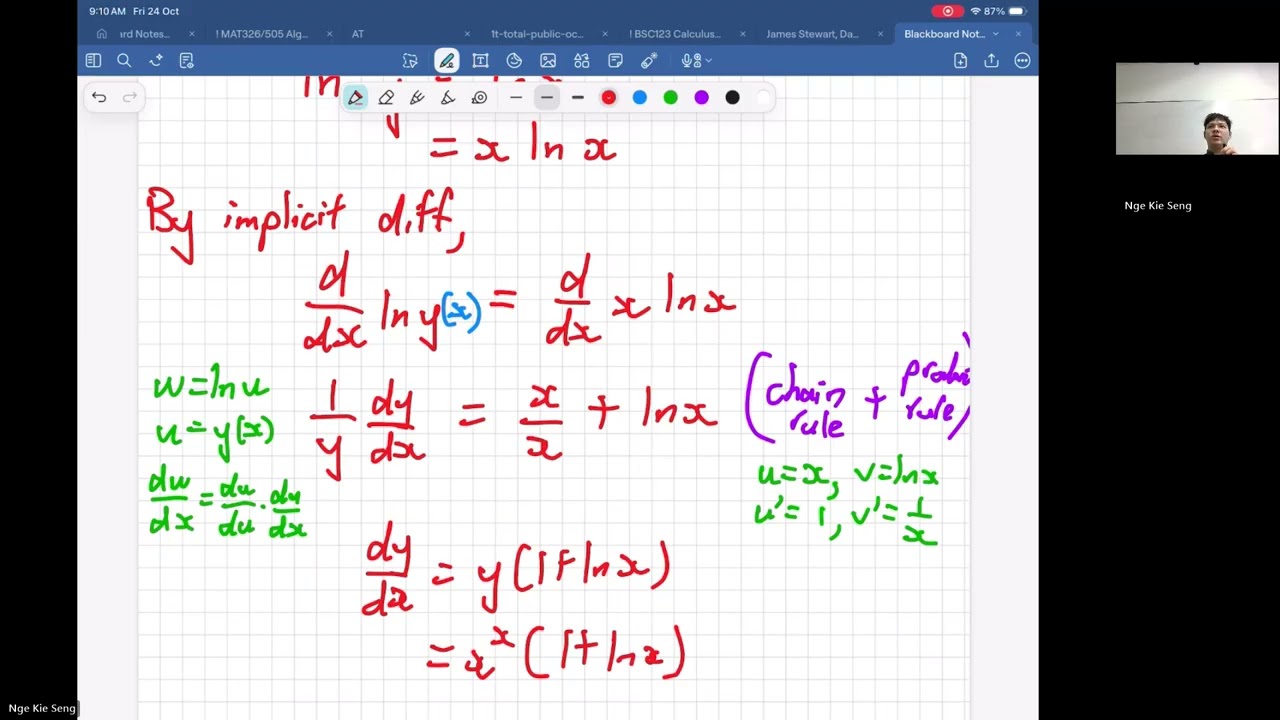 9:10 AM Fri 24 Oct
87%
ard Notes...
! MAT326/505 Alg...
AT
1t-total-public-oc...
! BSC123 Calculus...
James Stewart, Da...
Blackboard Not...
= x ln x
By implicit diff,
d/dx ln y(x) = d/dx x ln x
1/y dy/dx = x/x + ln x
(chain rule + produ rule)
w = ln u
u = y(x)
dw/dx = dw/du · du/dx
u = x, v = ln x
u' = 1, v' = 1/x
dy/dx = y(1 + ln x)
= x^x (1 + ln x)
Nge Kie Seng
Nge Kie Seng